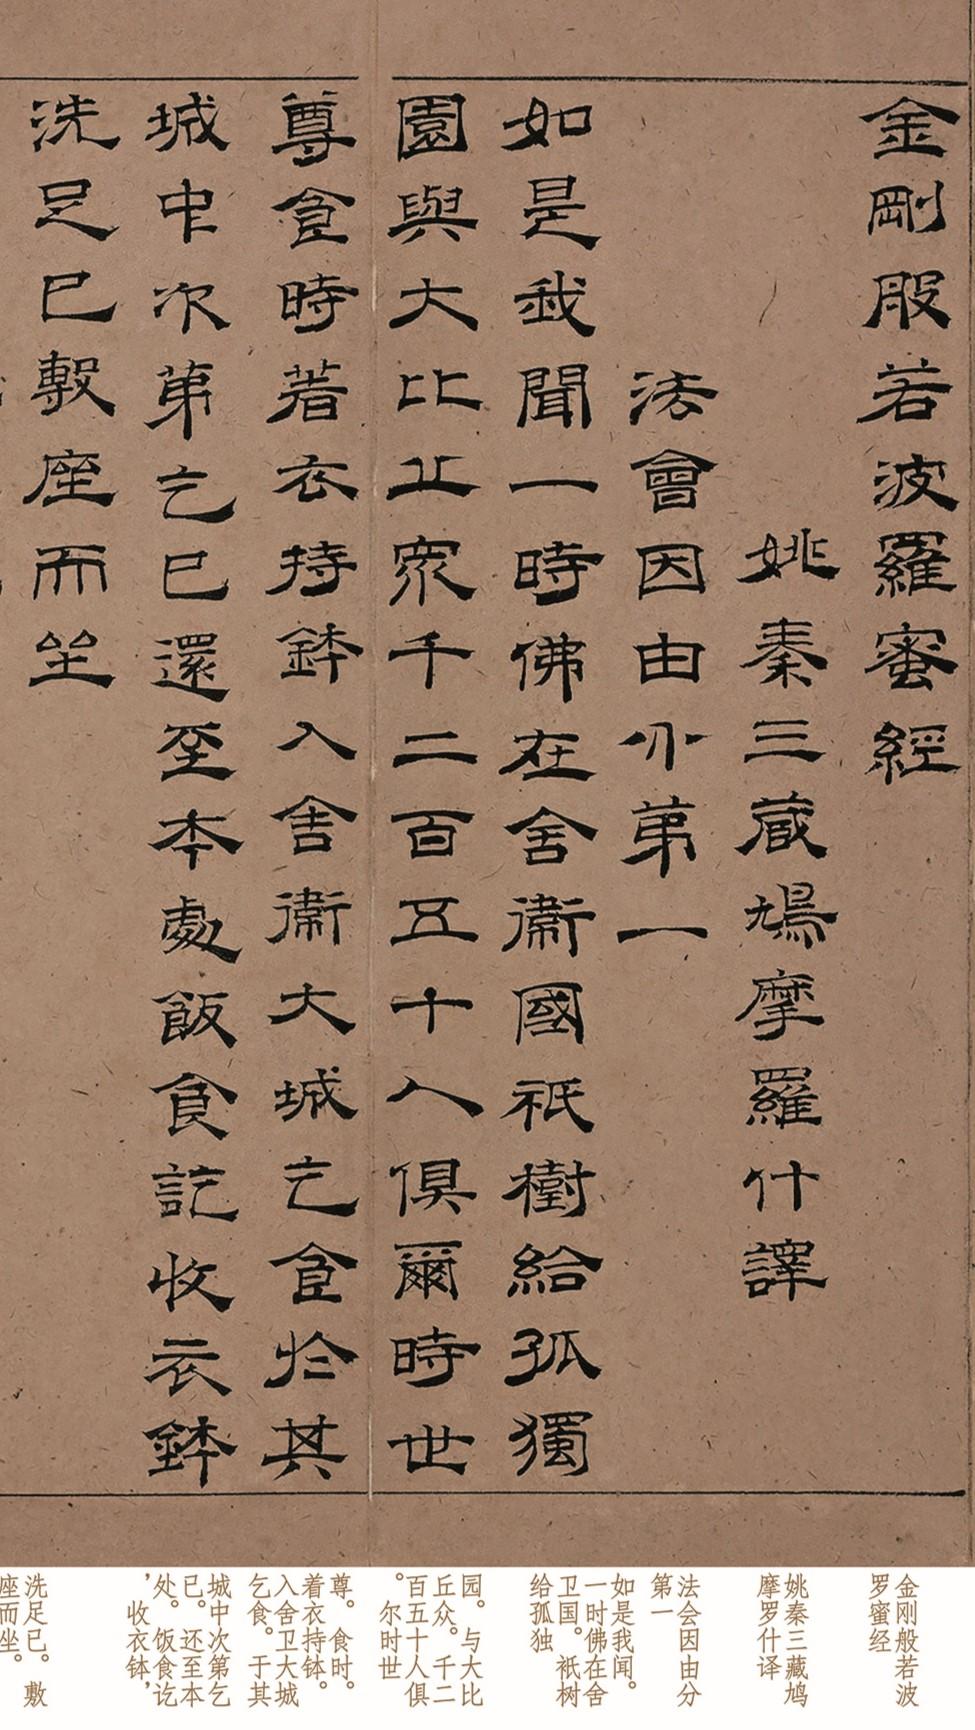 金剛般若波羅蜜經
姚秦三藏鳩摩羅什譯
法會因由分第一
如是我聞一時佛在舍衛國祇樹給孤獨
園與大比丘眾千二百五十人俱爾時世
尊食時著衣持鉢入舍衛大城乞食於其
城中次第乞已還至本處飯食訖收衣鉢
洗足已敷座而坐
金刚般若波
罗蜜经
姚秦三藏鸠
摩罗什译
法会因由分
第一
如是我闻。
一时佛在舍
卫国。祇树
给孤独
园。与大比
丘众。千二
百五十人俱
。尔时世
尊。食时。
着衣持钵。
入舍卫大城
乞食。于其
城中次第乞
已。还至本
处。饭食讫
，收衣钵，
洗足已。敷
座而坐。